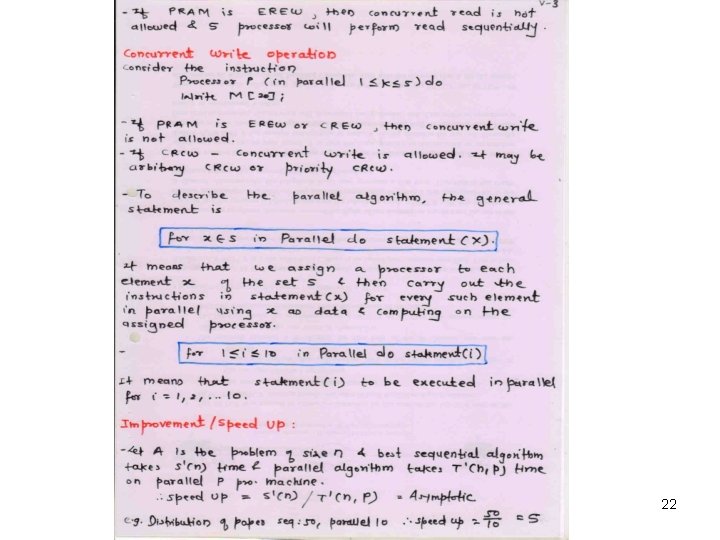 V-3
- If PRAM is EREW, then concurrent read is not
allowed & 5 processor will perform read sequentially.
Concurrent write operation
Consider the instruction
Processor P (in parallel 1 ≤ K ≤ 5) do
Write M [20];
- If PRAM is EREW or CREW, then concurrent write
is not allowed.
- If CRCW – concurrent write is allowed. It may be
arbitrary CRCW or priority CRCW.
- To describe the parallel algorithm, the general
statement is
for x ∈ S in Parallel do statement (X).
It means that we assign a processor to each
element x of the set S & then carry out the
instructions in statement (x) for every such element
in parallel using x as data & computing on the
assigned processor.
- for 1 ≤ i ≤ 10 in Parallel do statement(i)
It means that statement (i) to be executed in parallel
for i = 1, 2, ... 10.
Improvement / Speed up :
- Let A is the problem of size n & best sequential algorithm
takes S'(n) time & parallel algorithm takes T'(n, P) time
on parallel P pro. machine.
∴ speed up = S'(n) / T'(n, P) = Asymptotic
e.g. Distribution of paper seq : 50, parallel 10 ∴ speed up = 50/10 = 5
22